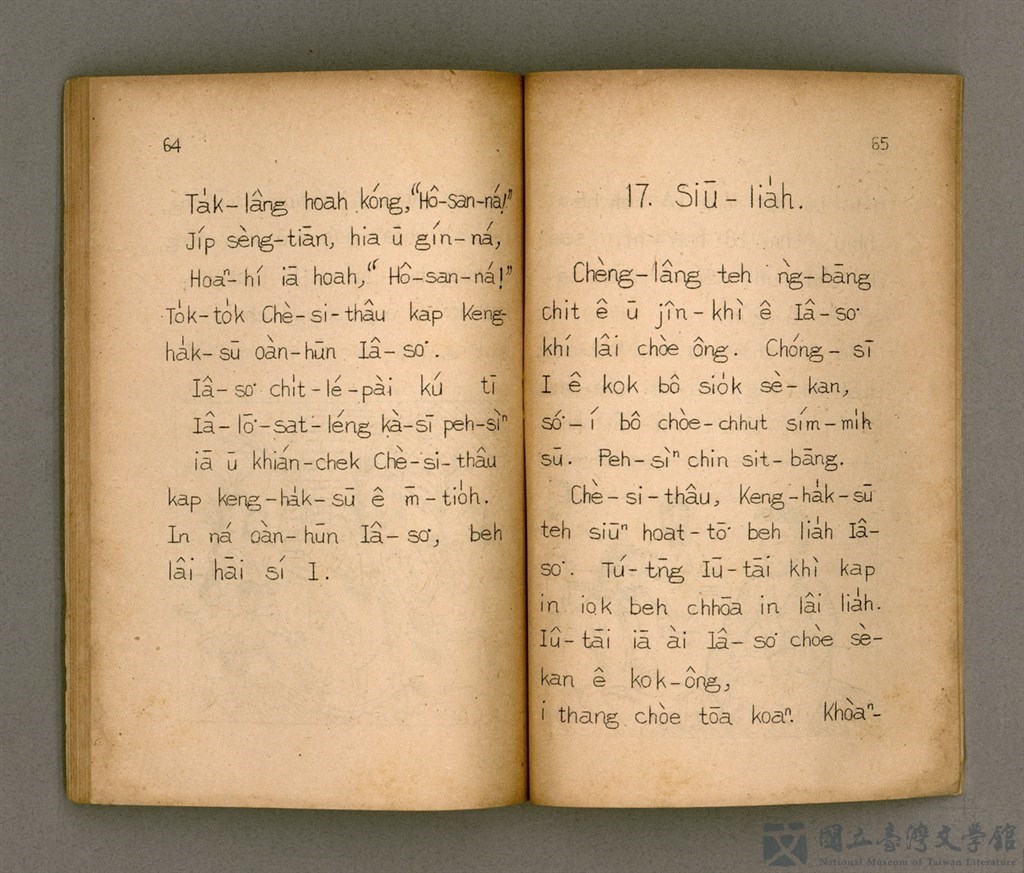 64
Ta̍k-lâng hoah kóng, “Hô-san-ná!”
Ji̍p sèng-tiān, hia ū gín-ná,
Hoaⁿ-hí iā hoah, “Hô-san-ná!”
To̍k-to̍k Chè-si-thâu kap Keng-
ha̍k-sū oàn-hūn Iâ-so͘.
Iâ-so͘ chi̍t-lé-pài kú tī
Iâ-lō͘-sat-léng kà-sī peh-sìⁿ
iā ū khián-chek Chè-si-thâu
kap keng-ha̍k-sū ê m̄-tio̍h.
In ná oàn-hūn Iâ-so͘, beh
lâi hāi sí I.
65
17. Siū-lia̍h.
Chèng-lâng teh ǹg-bāng
chit ê ū jîn-khì ê Iâ-so͘
khí lâi chòe ông. Chóng-sī
I ê kok bô sio̍k sè-kan,
só͘-í bô chòe-chhut sím-mi̍h
sū. Peh-sìⁿ chin sit-bāng.
Chè-si-thâu, Keng-ha̍k-sū
teh siūⁿ hoat-tō͘ beh lia̍h Iâ-
so͘. Tú-tn̄g Iū-tāi khì kap
in iok beh chhōa in lâi lia̍h.
Iû-tāi iā ài Iâ-so͘ chòe sè-
kan ê kok-ông,
i thang chòe tōa koaⁿ. Khòaⁿ-
國立臺灣文學館
National Museum of Taiwan Literature